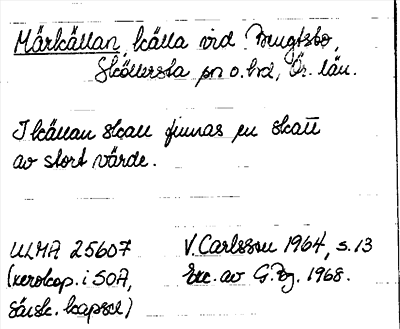 Märkällan, källa vid Brugtsbo,
Sköllersta sn o. hd, Ör. län.
I källan skall finnas en skatt
av stort värde.
ULMA 25607 V. Carlsson 1964, s. 13
(xerokop. i SOA, Exc. av G. Bg. 1968.
särsk. kapsel)